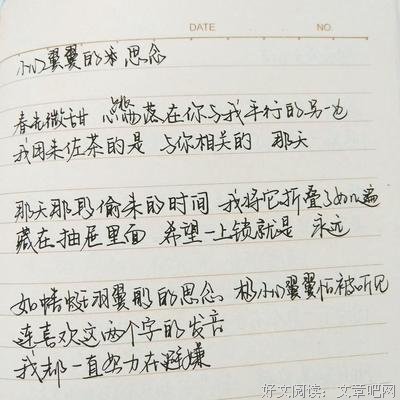 DATE NO.
小心翼翼的 思念
春光微甜 散落在你与我平行的另一边
我因来佐茶的是 与你相关的 那天
那天那段偷来的时间 我将它折叠了 遍
藏在抽屉里面 希望一上锁就是 永远
如蜻蜓羽翼般的思念 小心翼翼怕被听见
连喜欢这两个字的发音
我都一直努力在避嫌
好文阅读:文章吧网